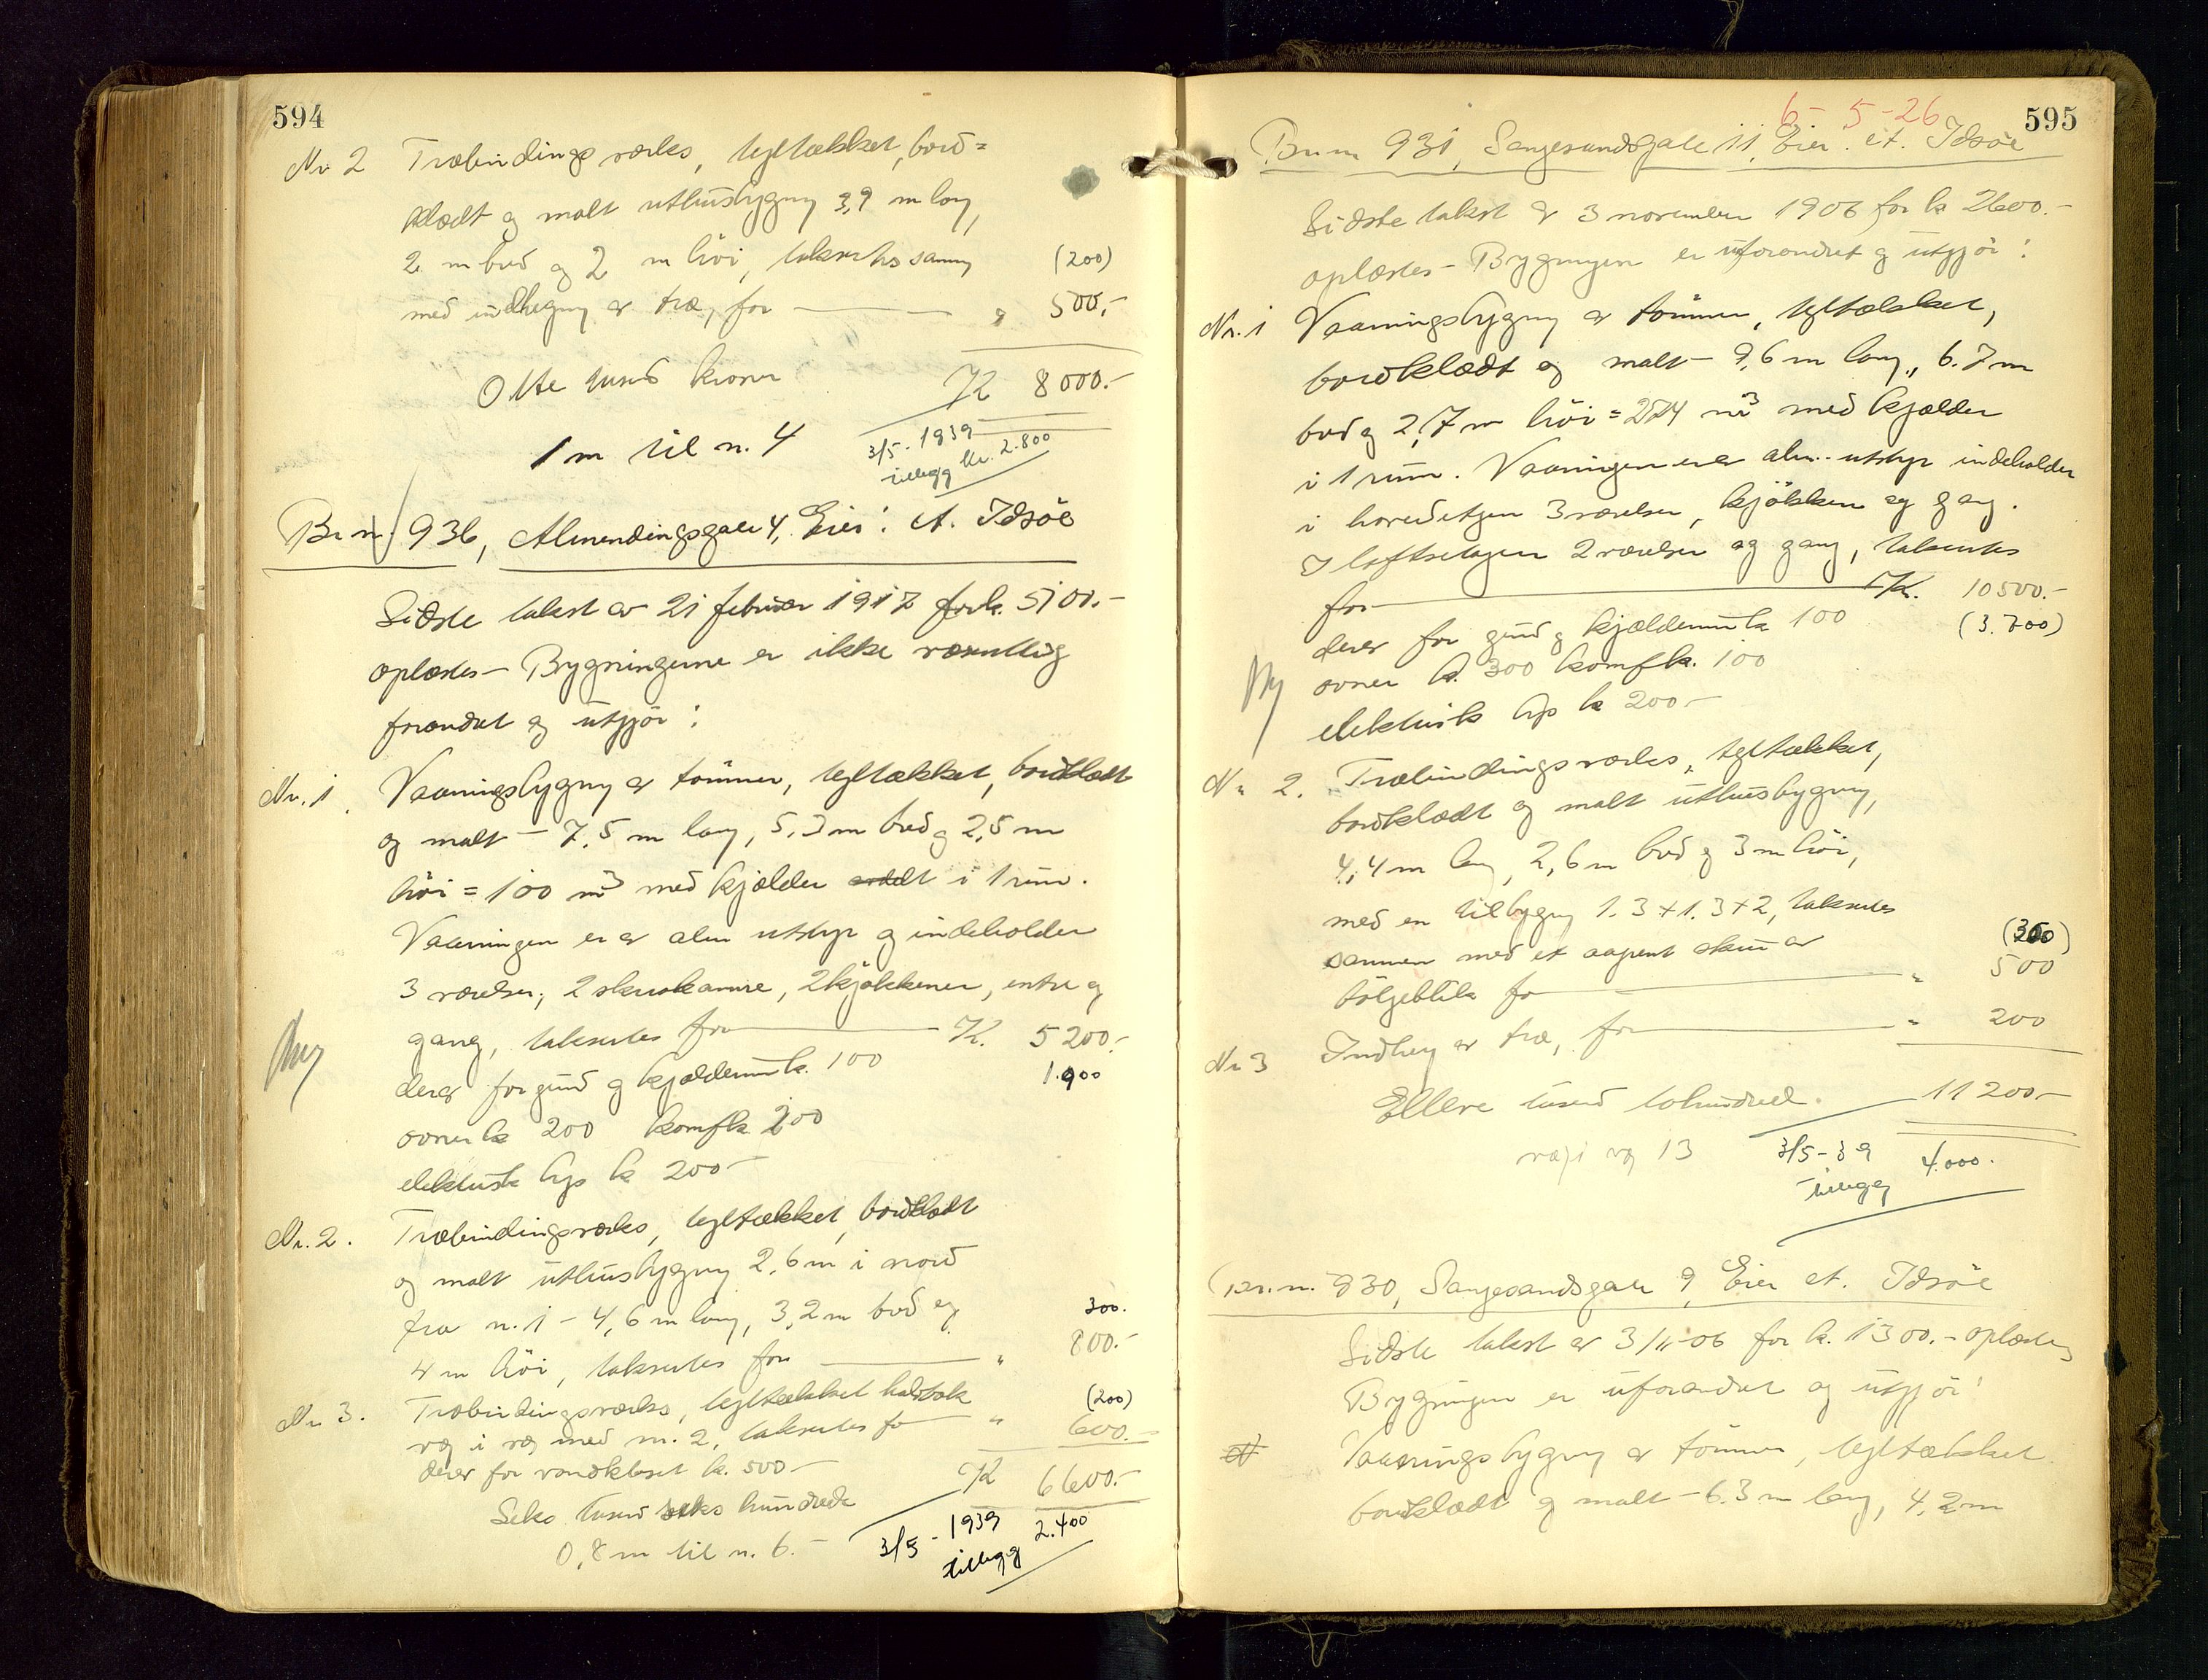 594
Nr 2 Træbindingsverks, tegltækket, bord=
klædt og malt uthusbygng 3,9 m lang,
2 m bred og 2 m høi, takseres samm
(200)
med indhegng av træ, for " 500,-
Otte tusend kroner K 8000.-
1 m til n. 4
3/5-1939
tillegg kr. 2.800
Br n 936, Almendingsgate 4, Eier: A. Idsöe
Sidste takst av 21 februar 1917 for k. 5100.-
oplæstes - Bygningerne er ikke væsentlig
forandret og utgjør:
Nr. 1. Vaaningsbygng av tömmer, tegltækket, bordklædt
og malt - 7,5 m lang, 5,3 m bred og 2,5 m
høi = 100 m3 med kjælder i 1 rum.
Vaaningen er av alm utstyr og indeholder
3 værelser, 2 skraakamre, 2 kjøkkener, entre og
gang, takseres for K. 5200.-
1.900
derav for grund og kjældermur k. 100
ovner k 200 komf k 200
elektrisk lys k 200-
Nr. 2. Træbindingsverks, tegltækket, bordklædt
og malt uthusbygng 2,6 m i nord
fra n. 1 - 4,6 m lang, 3,2 m bred og
300.
4 m høi, takseres for " 800.-
Nr 3. Træbindingsverks, tegltækket halvtak
(200)
væg i væg med nr. 2, takseres for " 600.-
derav for vandkloset k. 500-
Seks tusend seks hundrede K 6600.-
0,8 m til n. 6.-
3/5-1939 2.400
tillegg
595
6-5-26
Br nr 931, Sangesundsgate 11, Eier: A. Idsöe
Sidste takst av 3 november 1906 for k 2600.-
oplæstes - Bygningen er uforandret og utgjör:
Nr. 1 Vaaningsbygng av tömmer, tegltækket,
bordklædt og malt - 9,6 m lang, 6.7 m
bred og 2,7 m høi = 274 m3 med kjælder
i 1 rum. Vaaningen er av alm. utstyr indeholder
i hovedetagen 3 værelser, kjøkken og gang.
I loftsetagen 2 værelser og gang, takseres
for K. 10500.-
(3.700)
derav for grund og kjældermur k 100
ovner k. 300 komf k. 100
elektrisk lys k 200-
Nr 2. Træbindingsverks, tegltækket,
bordklædt og malt uthusbygng,
4,4 m lang, 2,6 m bred og 3 m høi,
med en tilbygng 1.3 + 1.3 + 2, takseres
(300)
sammen med et aapent skur av
bølgeblik for " 500
Nr 3 Indhegn av træ, for " 200
Elleve tusend tohundrede. 11200-
væg i væg 13
3/5-39 4.000.
tillegg
Br. n. 930, Sangesandsgate 9, Eier A. Idsöe
Sidste takst av 3/11-06 for k. 1300.- oplæstes
Bygningen er uforandret og utgjör:
Vaaningsbygng av tömmer, tegltækket
bordklædt og malt - 6.3 m lang, 4,2 m